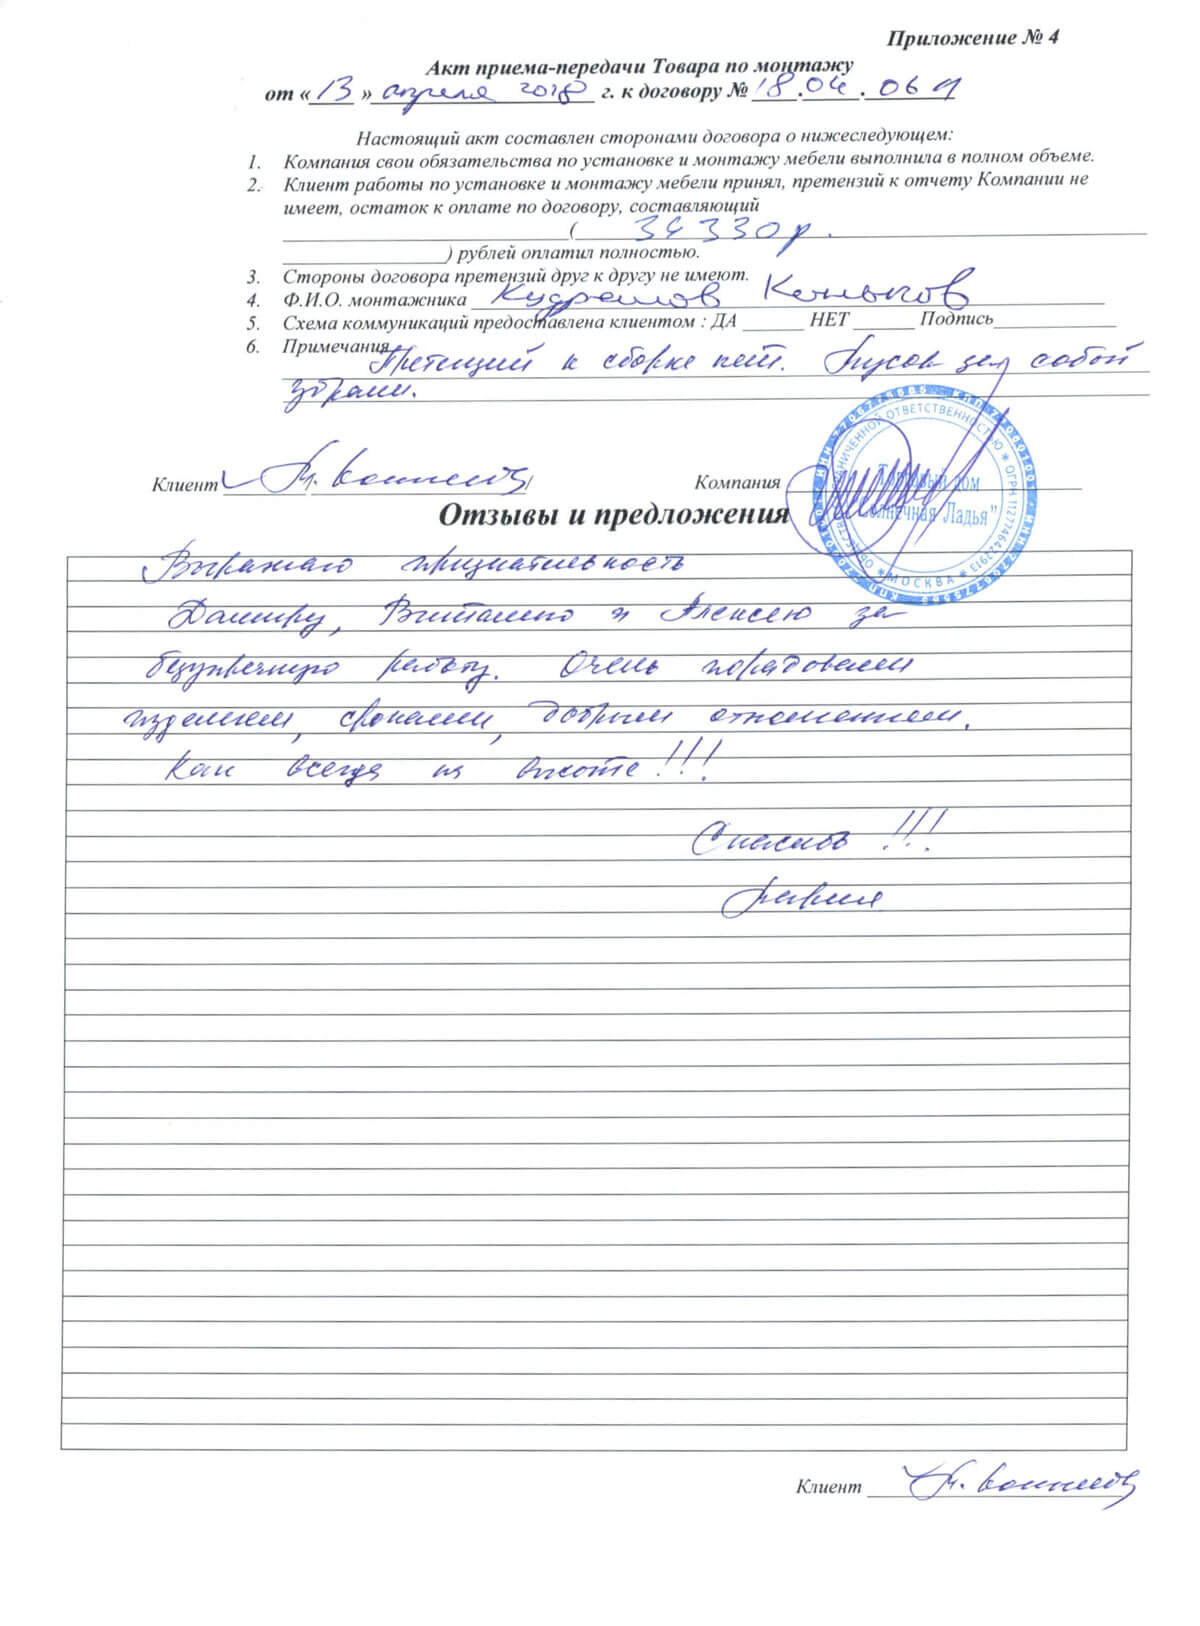 Приложение № 4
Акт приема-передачи Товара по монтажу
от «13» апреля 2018 г. к договору № 18.04.061
Настоящий акт составлен сторонами договора о нижеследующем:
1. Компания свои обязательства по установке и монтажу мебели выполнила в полном объеме.
2. Клиент работы по установке и монтажу мебели принял, претензий к отчету Компании не
имеет, остаток к оплате по договору, составляющий
( 34 330 р.
) рублей оплатил полностью.
3. Стороны договора претензий друг к другу не имеют.
4. Ф.И.О. монтажника Кудряшов Коньков
5. Схема коммуникаций предоставлена клиентом : ДА НЕТ Подпись
6. Примечания
Претензий к сборке нет. Мусор за собой
убрали.
Клиент
Компания
Торговый дом
"Солнечная Ладья"
МОСКВА
Отзывы и предложения
Выражаю признательность
Дамиру, Виталию и Алексею за
безупречную работу. Очень порадовали
изделием, сроками, добрым отношением.
Как всегда на высоте!!!
Спасибо!!!
Клиент